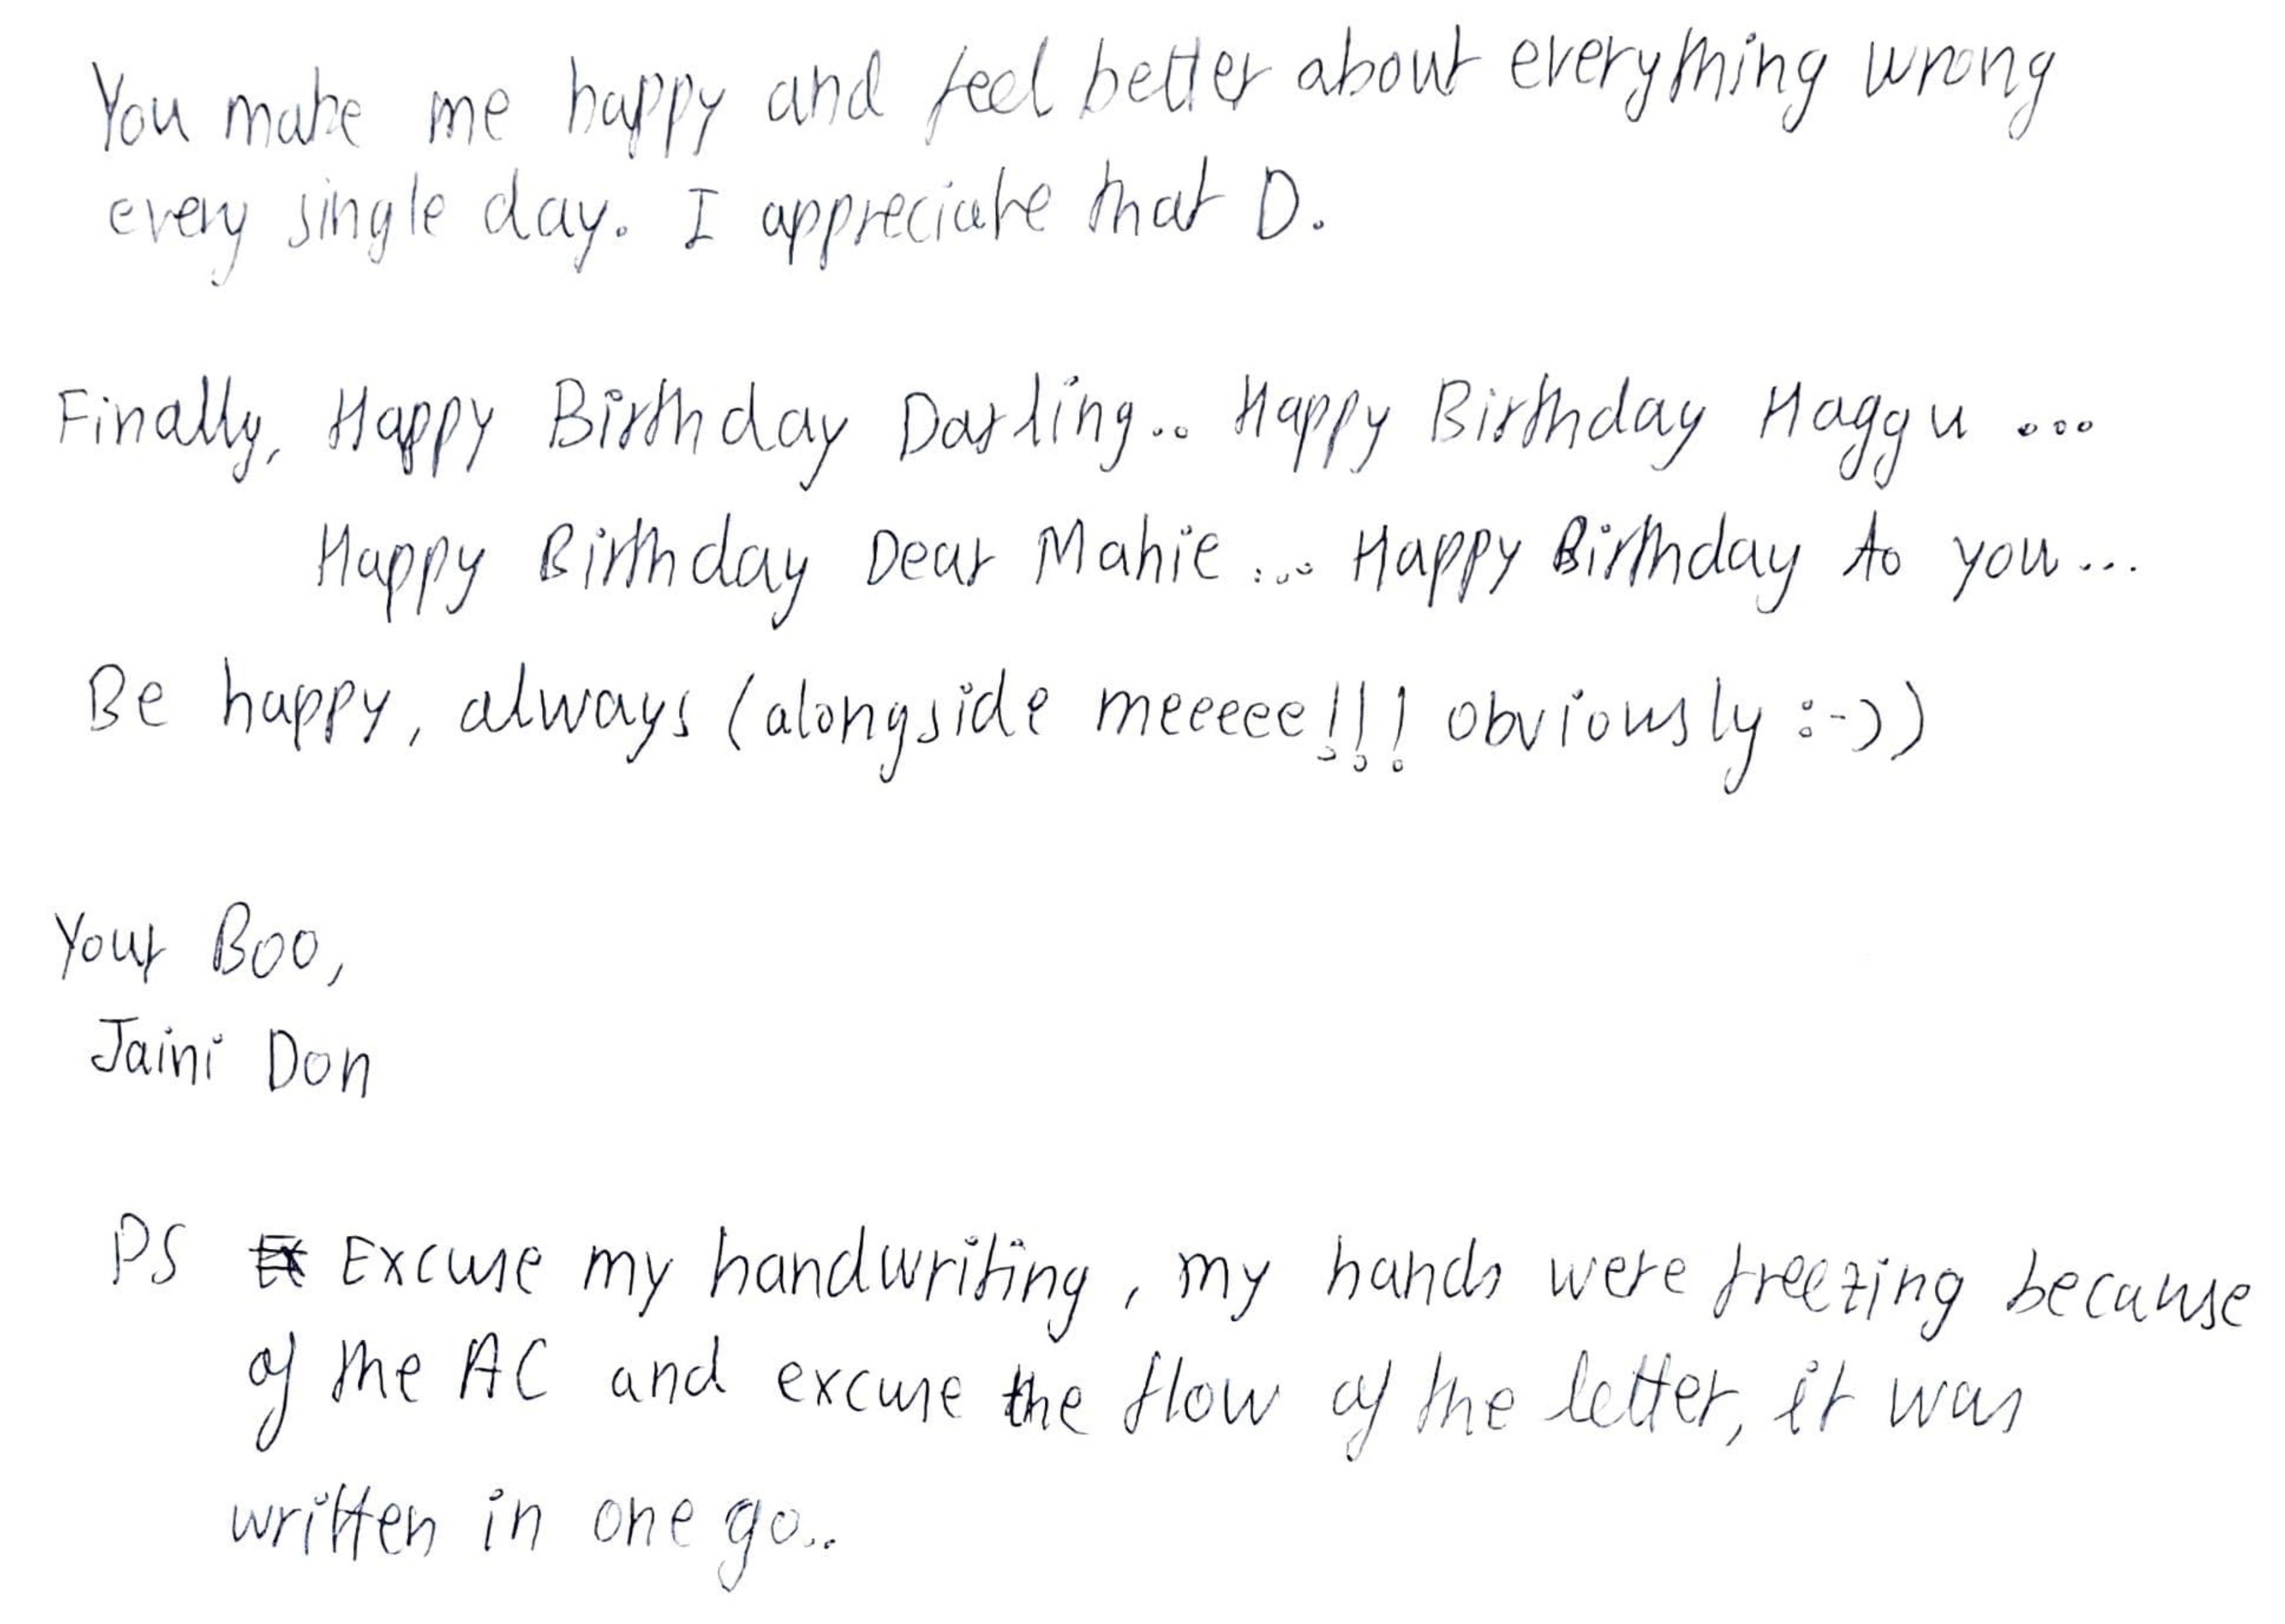 You make me happy and feel better about everything wrong
every single day. I appreciate that D.
Finally, Happy Birthday Darling.. Happy Birthday Haggu ...
Happy Birthday Dear Mahie ... Happy Birthday to you...
Be happy, always (alongside meeeee!!! obviously :-))
Your Boo,
Jaini Don
PS Excuse my handwriting, my hands were freezing because
of the AC and excuse the flow of the letter, it was
written in one go..